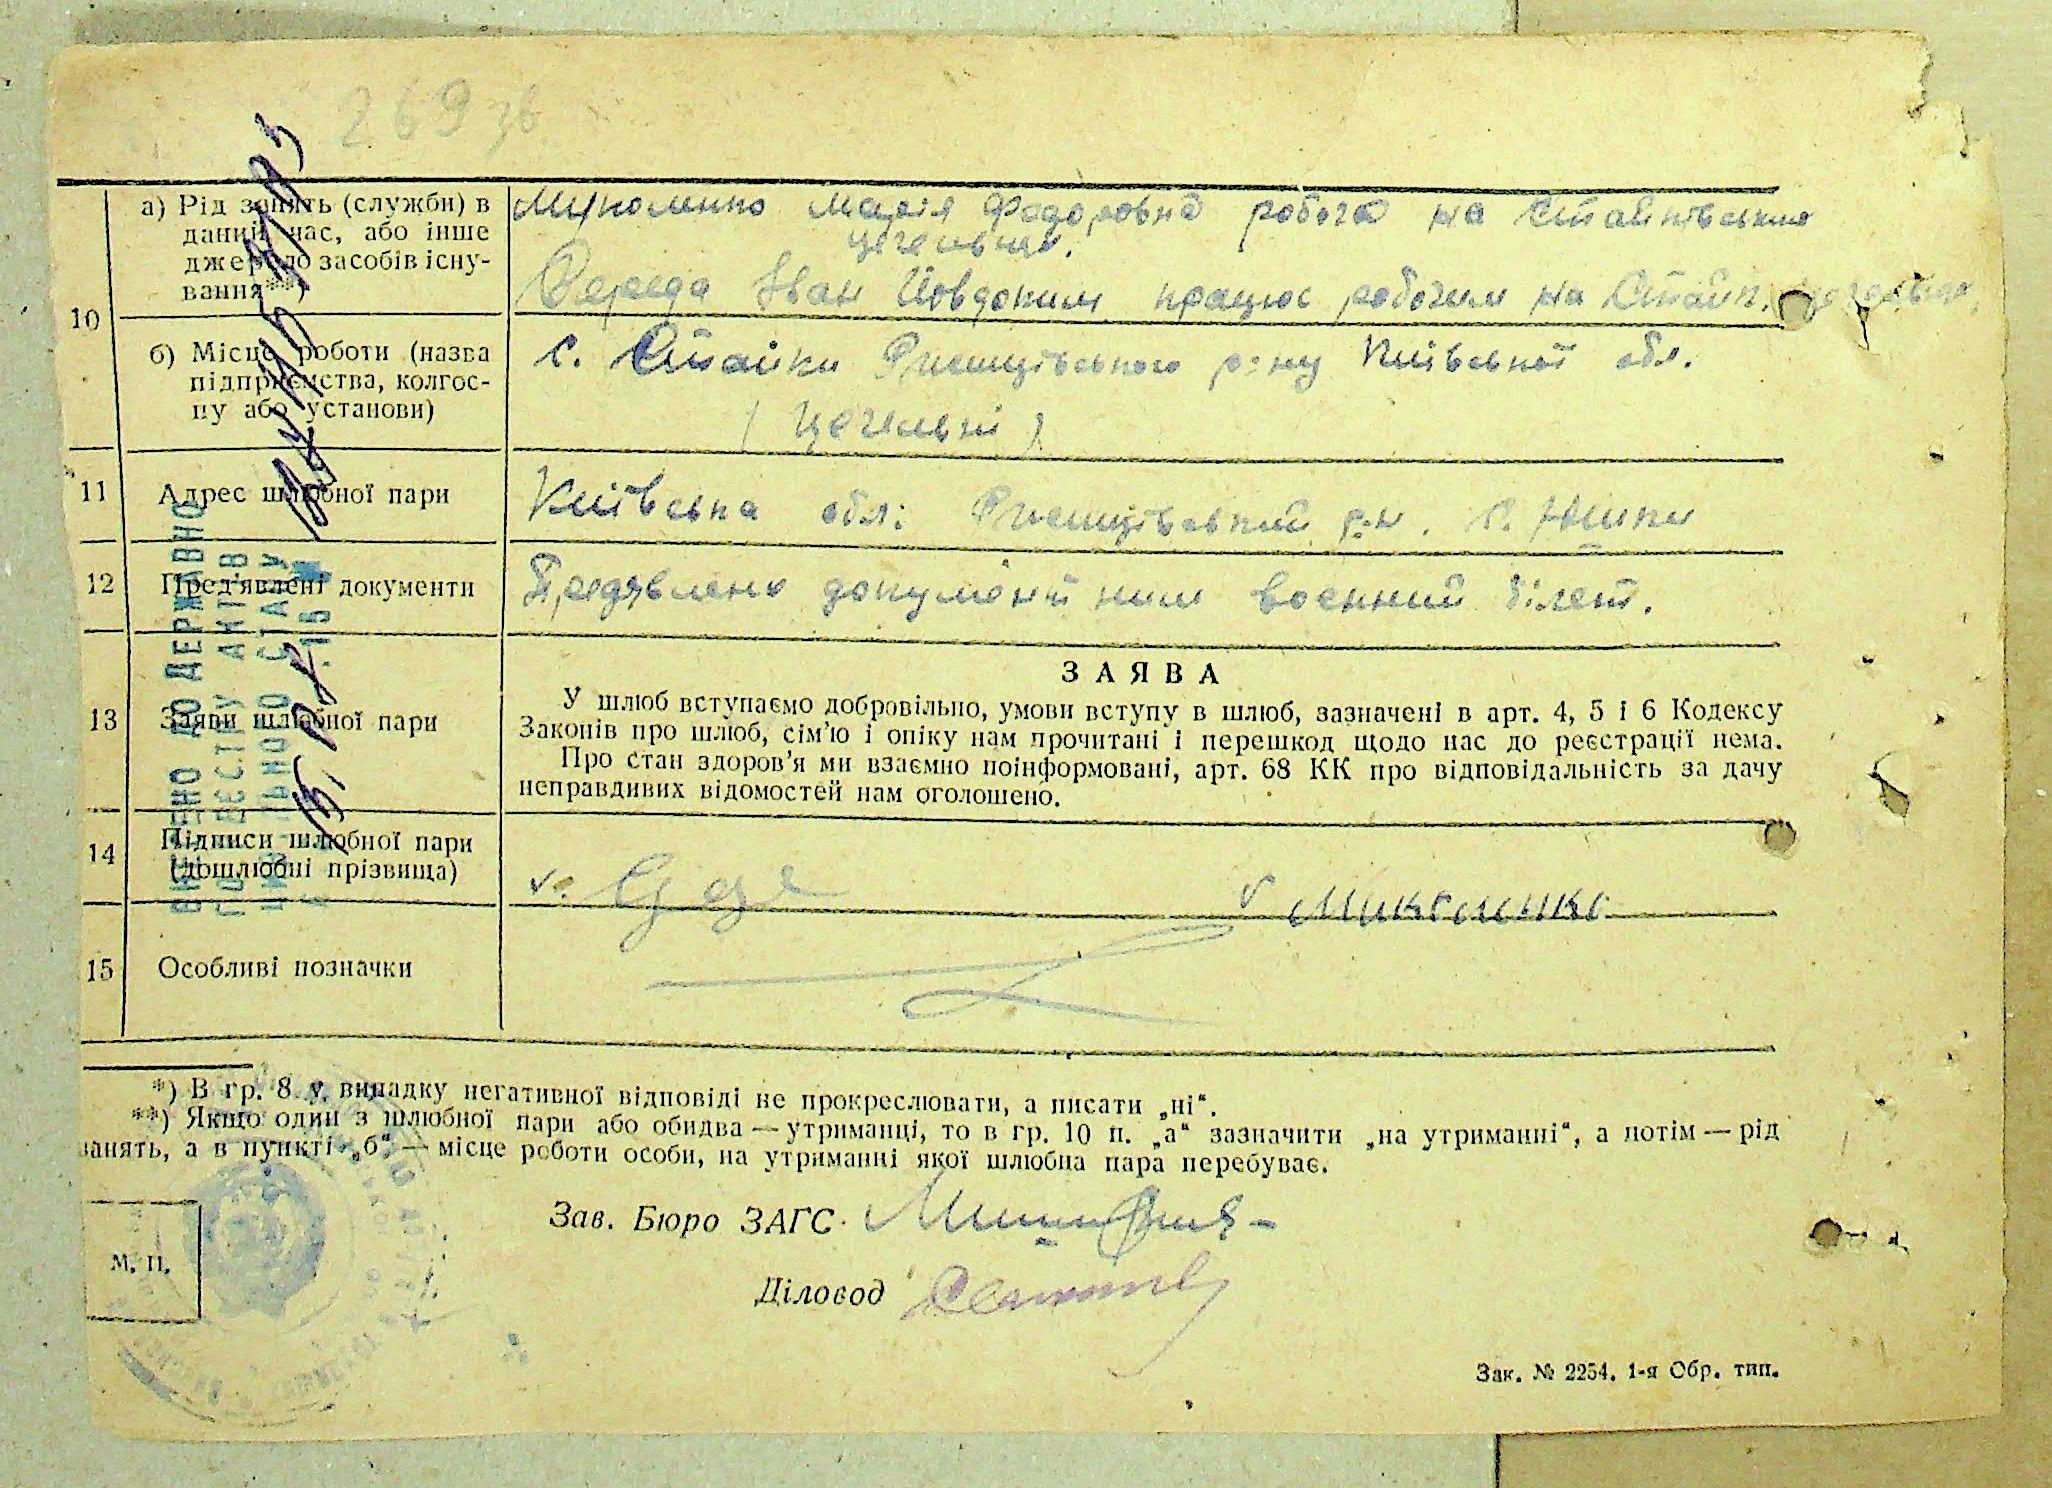 269 зв
10
а) Рід занять (служби) в
даний час, або інше
джерело засобів існу-
вання**)
Марія Федоровна робоча на Стайківському
цегельня.
Середа Іван Йовдоким працює робочим на Стайк.
б) Місце роботи (назва
підприємства, колгос-
пу або установи)
с. Стайки Ржищівського р-ну Київської обл.
(Цегельні)
11
Адрес шлюбної пари
Київська обл. Ржищівський р-н. с.
12
Пред'явлені документи
Предявлено воєнний білет.
13
Заяви шлюбної пари
ЗАЯВА
У шлюб вступаємо добровільно, умови вступу в шлюб, зазначені в арт. 4, 5 і 6 Кодексу
Законів про шлюб, сім'ю і опіку нам прочитані і перешкод щодо нас до реєстрації нема.
Про стан здоров'я ми взаємно поінформовані, арт. 68 КК про відповідальність за дачу
неправдивих відомостей нам оголошено.
14
Підписи шлюбної пари
(дошлюбні прізвища)
15
Особливі позначки
ВНЕСЕНО ДО ДЕРЖАВНОГО
РЕЄСТРУ АКТІВ
ЦИВІЛЬНОГО СТАНУ
*) В гр. 8 у випадку негативної відповіді не прокреслювати, а писати „ні“.
**) Якщо один з шлюбної пари або обидва — утриманці, то в гр. 10 п. „а“ зазначити „на утриманні“, а потім — рід
занять, а в пункті „б“ — місце роботи особи, на утриманні якої шлюбна пара перебуває.
Зав. Бюро ЗАГС
Діловод
М. П.
Зак. № 2254. 1-я Обр. тип.